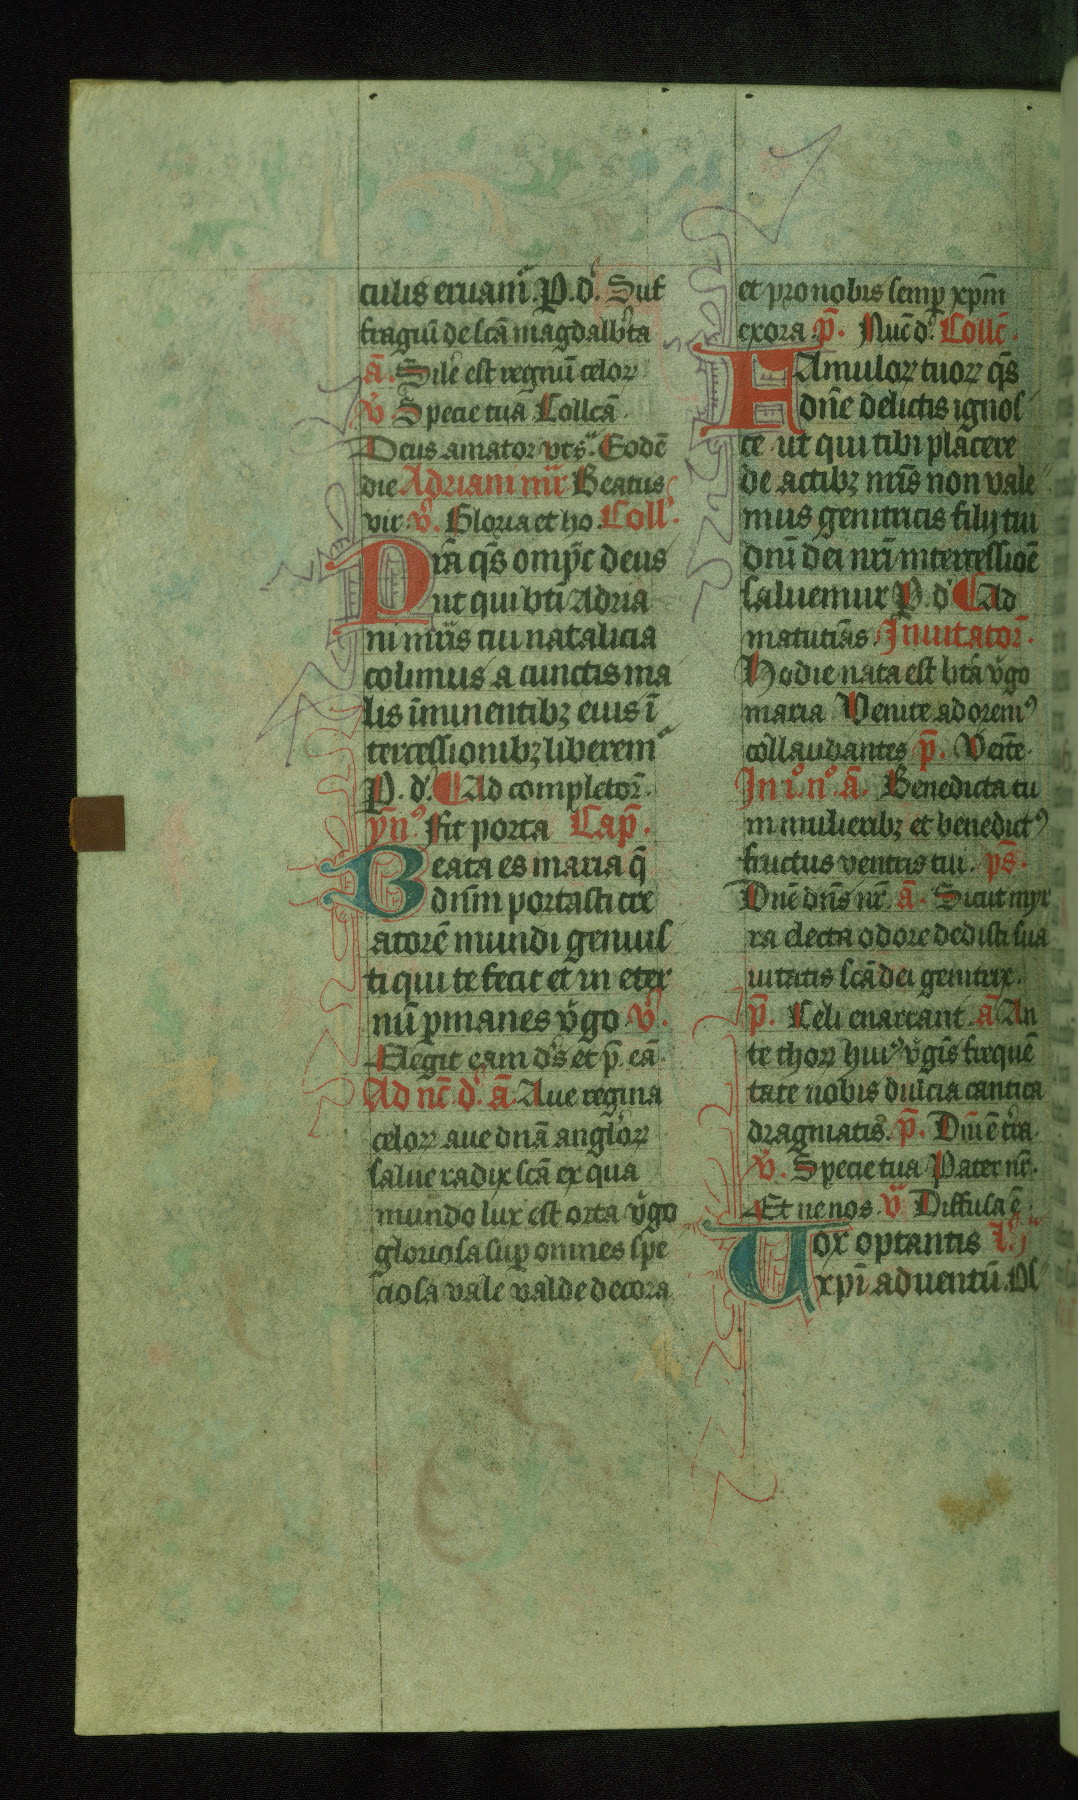 culis eruam̃. P. d'. Suf
fragiũ de scã magdalb'ta
ã. Sile est regnũ celoꝝ
v̉ Specie tua Collcã.
Deus amator vts. Eodẽ
die Adriani mr̃ Beatus
vir. v̉. Gloria et ho. Coll'.
Pr̃a q̃s omp̃c deus
ut qui bti Adria
ni mr̃is tui natalicia
colimus a cunctis ma
lis ĩminentibꝫ eius ĩ
tercessionibꝫ liberem
P. d'. Ad completor̃.
ym̃n⁹ Fit porta Cap̃.
Beata es maria q̃
dñm portasti cre
atorẽ mundi genuis
ti qui te fecit et in eter
nũ ꝑmanes v̉go v̉.
Elegit eam d's et p̃. eã.
Ad nc̃. d'. ã. Aue regina
celoꝝ aue dnã angl'oꝝ
salue radix scã ex qua
mundo lux est orta v̉go
gloriosa suꝑ omnes spe
ciosa vale valde decora
et pro nobis semꝑ xp̃m
exora. p̃. Nuc̃ d'. Collc̃.
FAmuloꝝ tuoꝝ q̃s
dñe delictis ignos
ce ut qui tibi placere
de actibꝫ nr̃is non vale
mus genitricis filij tui
dnĩ dei nr̃i intercessiõe
saluemur P. d' Ad
matutĩas. Inuitator̃.
Hodie nata est btã v̉go
maria Venite adorem⁹
collaudantes p̃. Venite.
In i.° n.° ã. Benedicta tu
in mulieribꝫ et benedict⁹
fructus ventris tui. ps̃.
Dñe dñs nr̃. ã. Sicut myr
ra electa odore dedisti sua
uitatis scã dei genitrix.
p̃. Celi enarrant. ã An
te thoꝝ hui⁹ v̉gĩs frequẽ
tate nobis dulcia cantica
dragmatis. p̃. Dnĩ ẽ t'ra.
v̉. Specie tua Pater nr̃.
Et ne nos. v̉ Diffusa ẽ
Vox optantis
xpĩ aduentũ. Ol